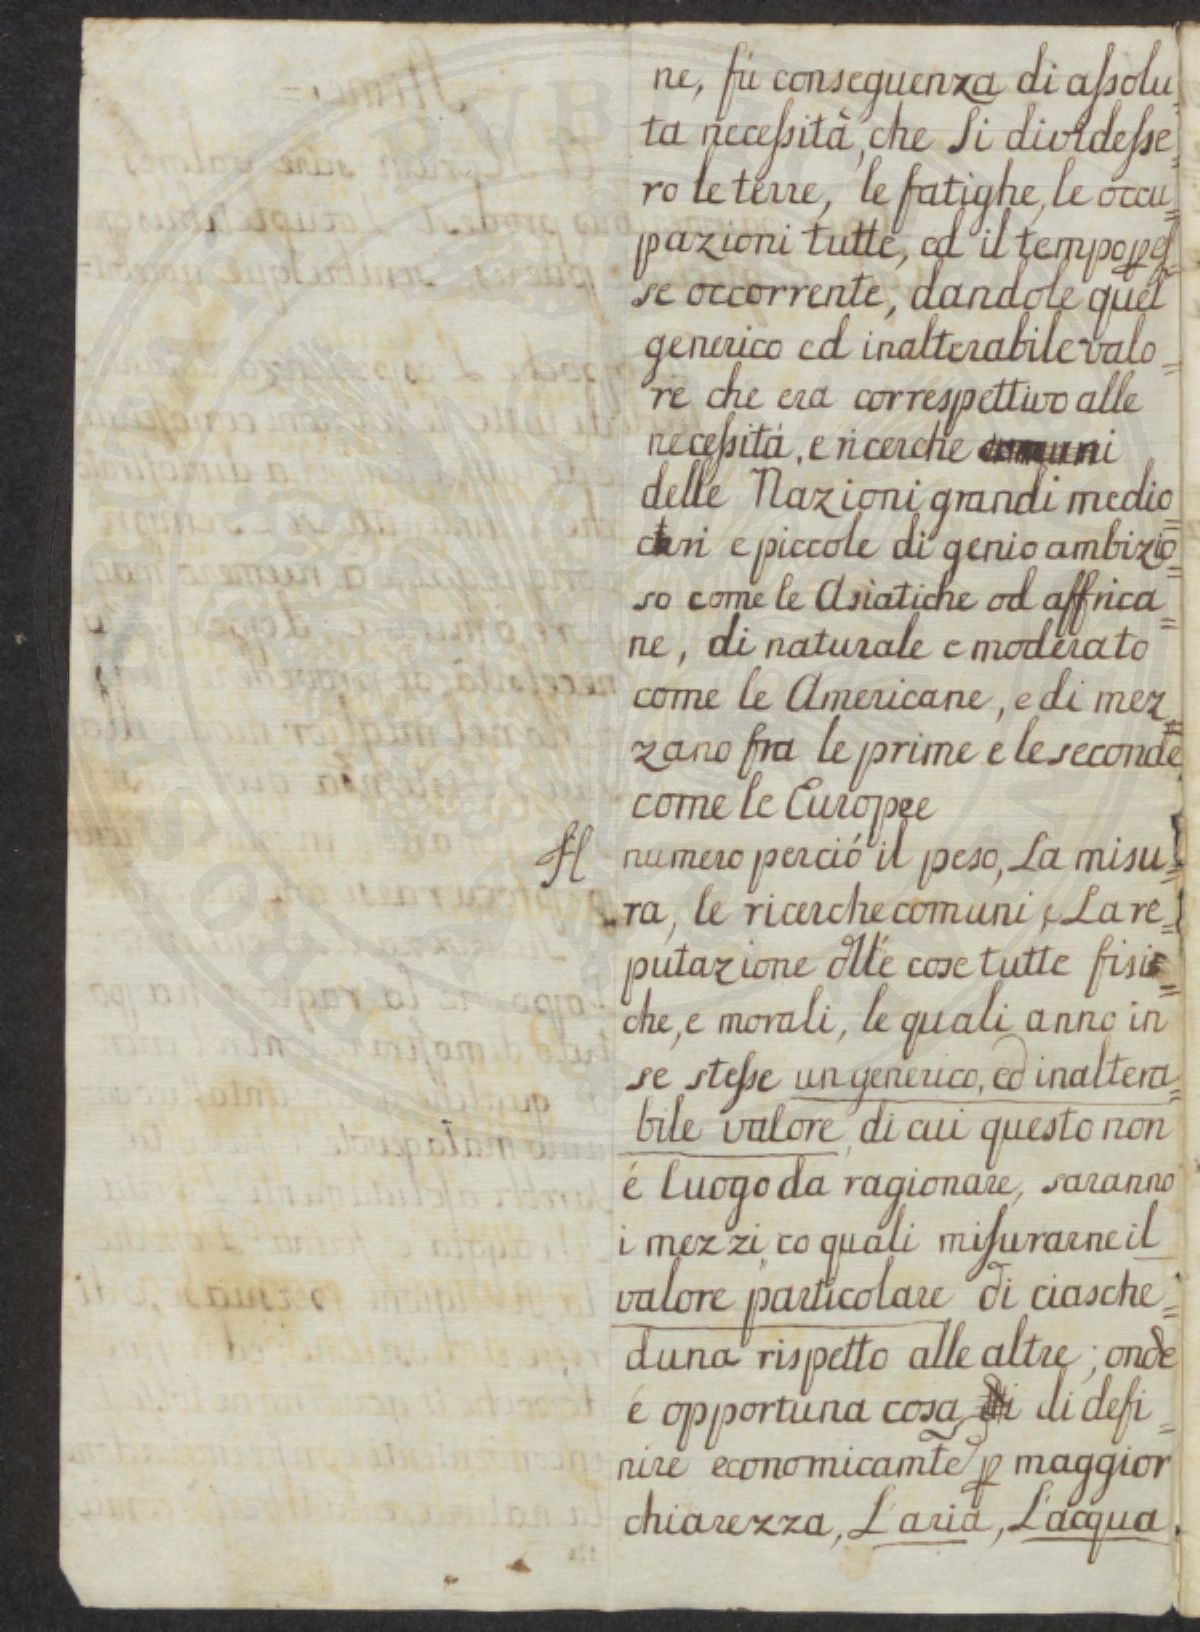 ne, fù conseguenza di assolu=
ta necessità, che si dividesse=
ro le terre, le fatighe, le occu=
pazioni tutte, ed il tempo p es=
se occorrente, dandole quel
generico ed inalterabile valo=
re che era correspettivo alle
necessità, e ricerche comuni
delle Nazioni grandi medio=
cri e piccole di genio ambizio=
so come le Asiatiche od affrica=
ne, di naturale e moderato
come le Americane, e di mez=
zano fra le prime e le seconde
come le Europee
Il numero perciò il peso, La misu=
ra, le ricerche comuni, e La re=
putazione dlle cose tutte fisi=
che, e morali, le quali anno in
se stesse un generico, ed inaltera=
bile valore, di cui questo non
é luogo da ragionare, saranno
i mezzi, co quali misurarne il
valore particolare di ciasche=
duna rispetto alle altre; onde
é opportuna cosa di defi=
nire economicamte p maggior
chiarezza, L'aria, L'acqua,